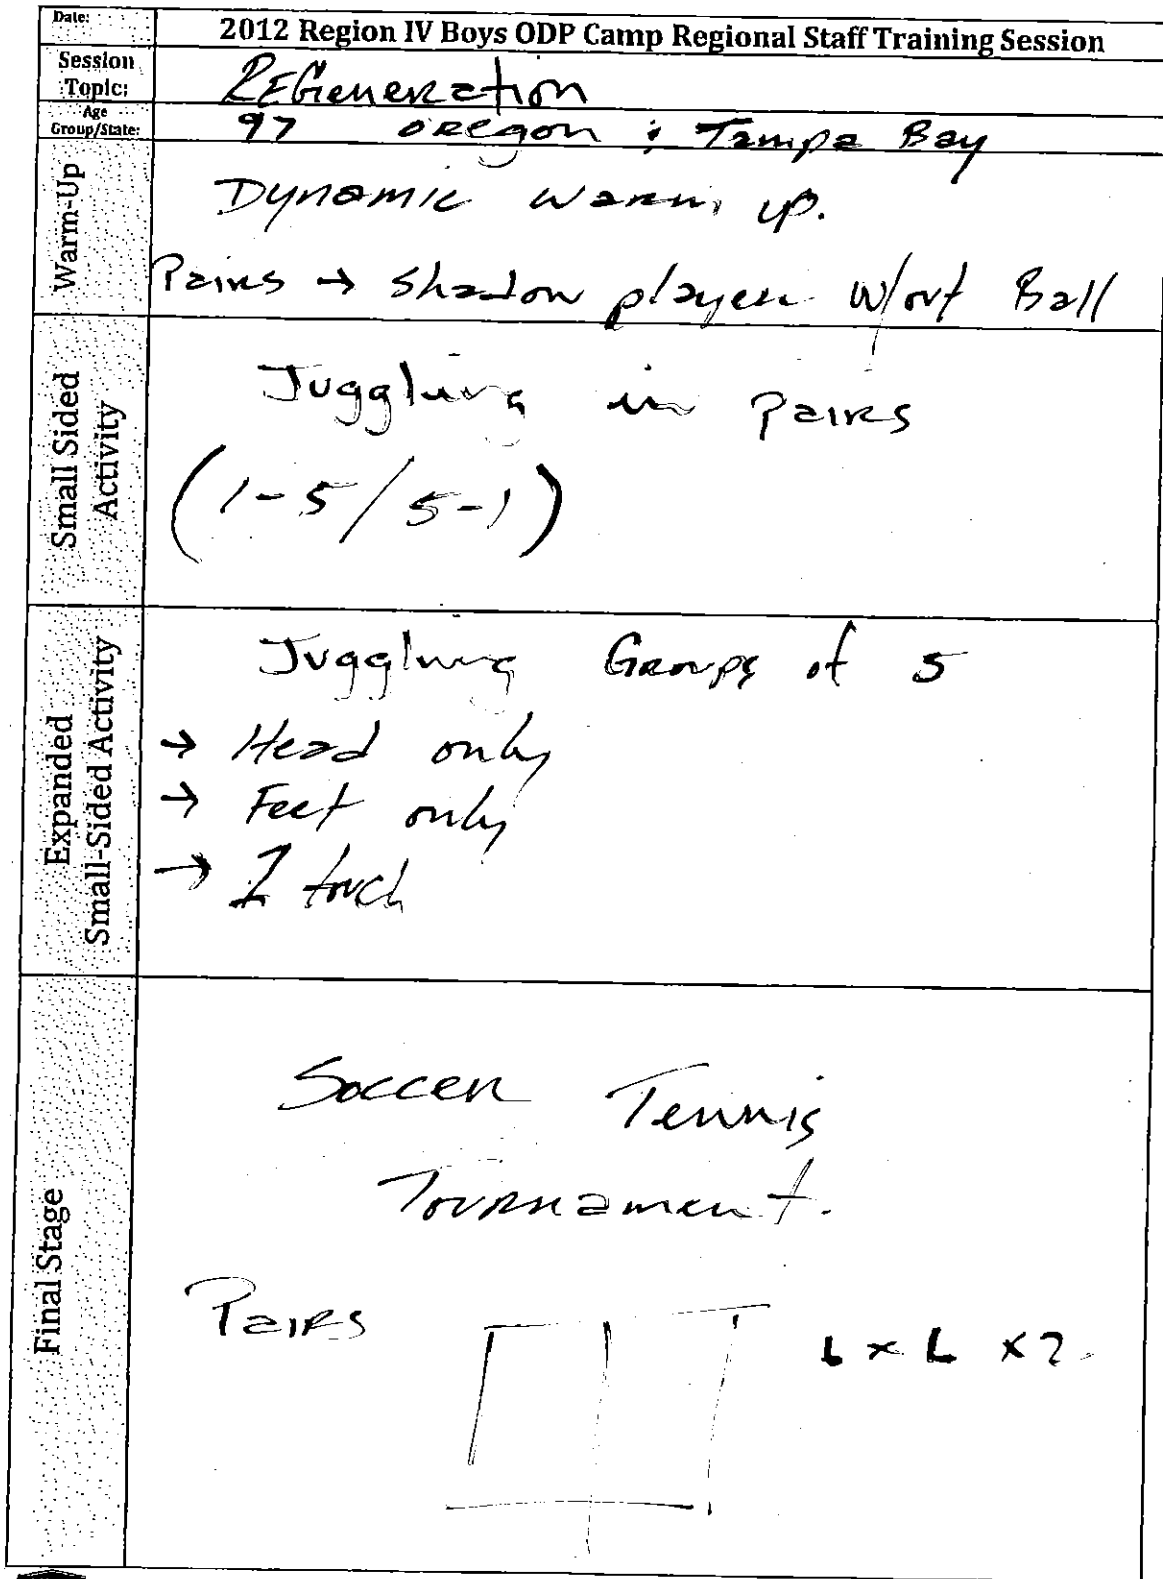 Date:
2012 Region IV Boys ODP Camp Regional Staff Training Session
Session Topic:
REGeneration
Age Group/State:
97 oregon ; Tampa Bay
Warm-Up
Dynamic warm up.
Pairs → Shadow player w/out Ball
Small Sided
Activity
Juggling in Pairs
(1-5/5-1)
Expanded
Small-Sided Activity
Juggling Groups of 5
→ Head only
→ Feet only
→ touch
Final Stage
Soccer Tennis
Tournament.
Pairs